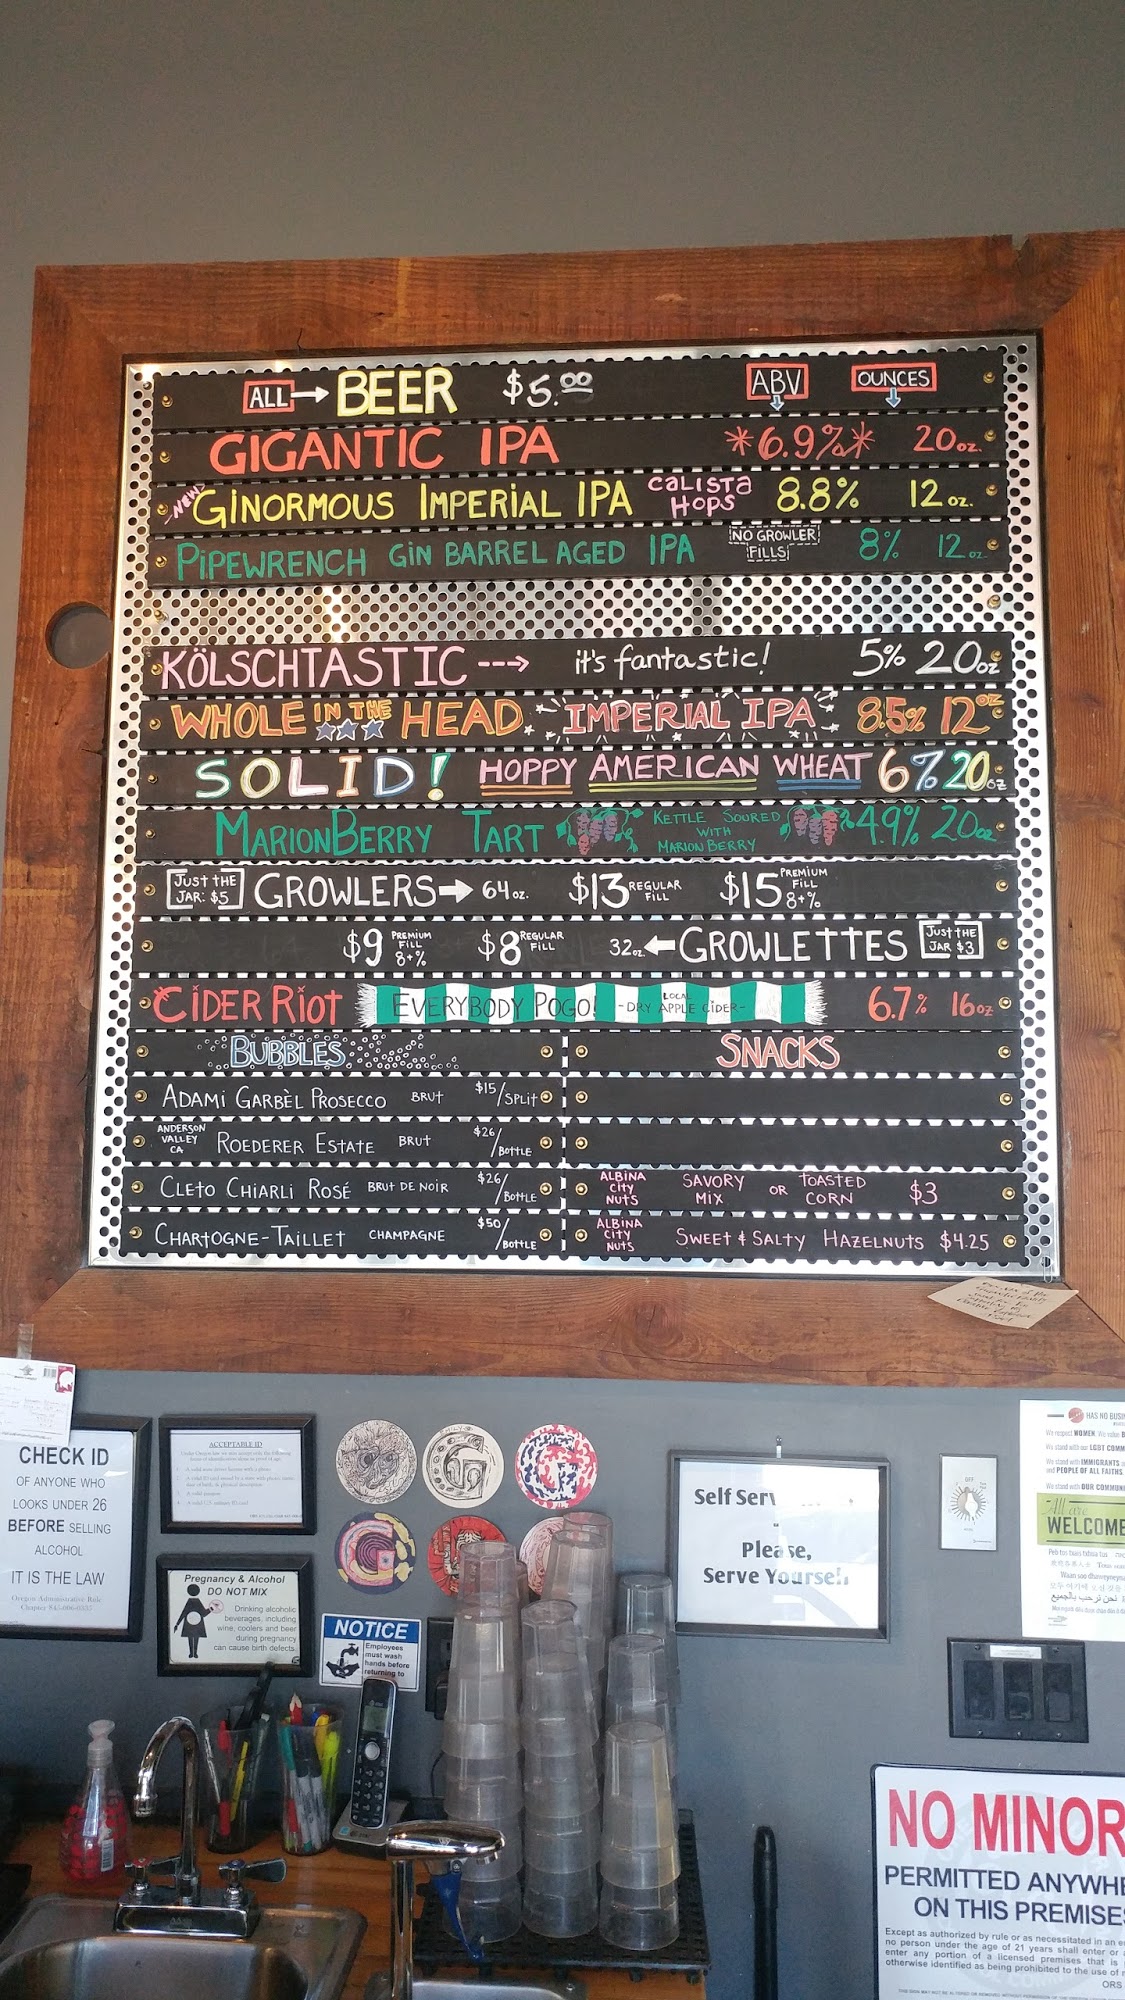 ALL → BEER $5.00 ABV OUNCES
GIGANTIC IPA *6.9%* 20 oz.
NEW GINORMOUS IMPERIAL IPA CALISTA HOPS 8.8% 12 oz.
PIPEWRENCH GIN BARREL AGED IPA NO GROWLER FILLS 8% 12 oz.
KÖLSCHTASTIC ---> it's fantastic! 5% 20 oz
WHOLE IN THE HEAD IMPERIAL IPA 8.5% 12 oz
SOLID! HOPPY AMERICAN WHEAT 6% 20 oz
MARIONBERRY TART KETTLE SOURED WITH MARIONBERRY 4.9% 20 oz
JUST THE JAR: $5 GROWLERS → 64 oz. $13 REGULAR FILL $15 PREMIUM FILL 8+%
$9 PREMIUM FILL 8+% $8 REGULAR FILL 32 oz. ← GROWLETTES JUST THE JAR $3
CIDER RIOT EVERYBODY POGO! LOCAL -DRY APPLE CIDER- 6.7% 16 oz
BUBBLES
ADAMI GARBÈL PROSECCO BRUT $15/SPLIT
ANDERSON VALLEY CA ROEDERER ESTATE BRUT $26/BOTTLE
CLETO CHIARLI ROSÉ BRUT DE NOIR $26/BOTTLE
CHARTOGNE-TAILLET CHAMPAGNE $50/BOTTLE
SNACKS
ALBINA CITY NUTS SAVORY MIX OR TOASTED CORN $3
ALBINA CITY NUTS SWEET & SALTY HAZELNUTS $4.25
CHECK ID
OF ANYONE WHO
LOOKS UNDER 26
BEFORE SELLING
ALCOHOL
IT IS THE LAW
Oregon Administrative Rule
ACCEPTABLE ID
Pregnancy & Alcohol
DO NOT MIX
Drinking alcoholic
beverages, including
wine, coolers and beer
during pregnancy
can cause birth defects.
NOTICE
Employees
must wash
hands before
returning to
Self Serv
Please,
Serve Yourself
OFF
HAS NO BUSI
We respect WOMEN. We value B
We stand with our LGBT COMM
We stand with IMMIGRANTS
and PEOPLE OF ALL FAITHS
We stand with OUR COMMUN
All are
WELCOME
NO MINOR
PERMITTED ANYWHE
ON THIS PREMISES
Except as authorized by rule or as necessitated in an e
no person under the age of 21 years shall enter or a
enter any portion of a licensed premises that is
otherwise identified as being prohibited to the use of
ORS